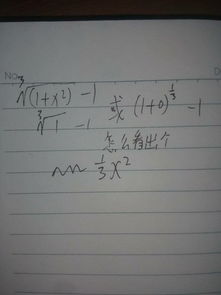 No
∛(1+x²) -1
∛1 -1 或 (1+0)^{1/3} -1
怎么看出个
~~ 1/3 x²